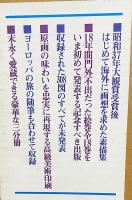 ■昭和37年大観賞受賞後
はじめて海外に画想を求めた素描集
■18年間門外不出だった絵巻全18巻を
いま初めて発表する記念すべき出版
■収録された308図のすべてが未発表
■原画の味わいを忠実に再現する高級美術印刷
■ヨーロッパの旅の随筆も合わせて収録
■末永く愛蔵できる豪華な二分冊